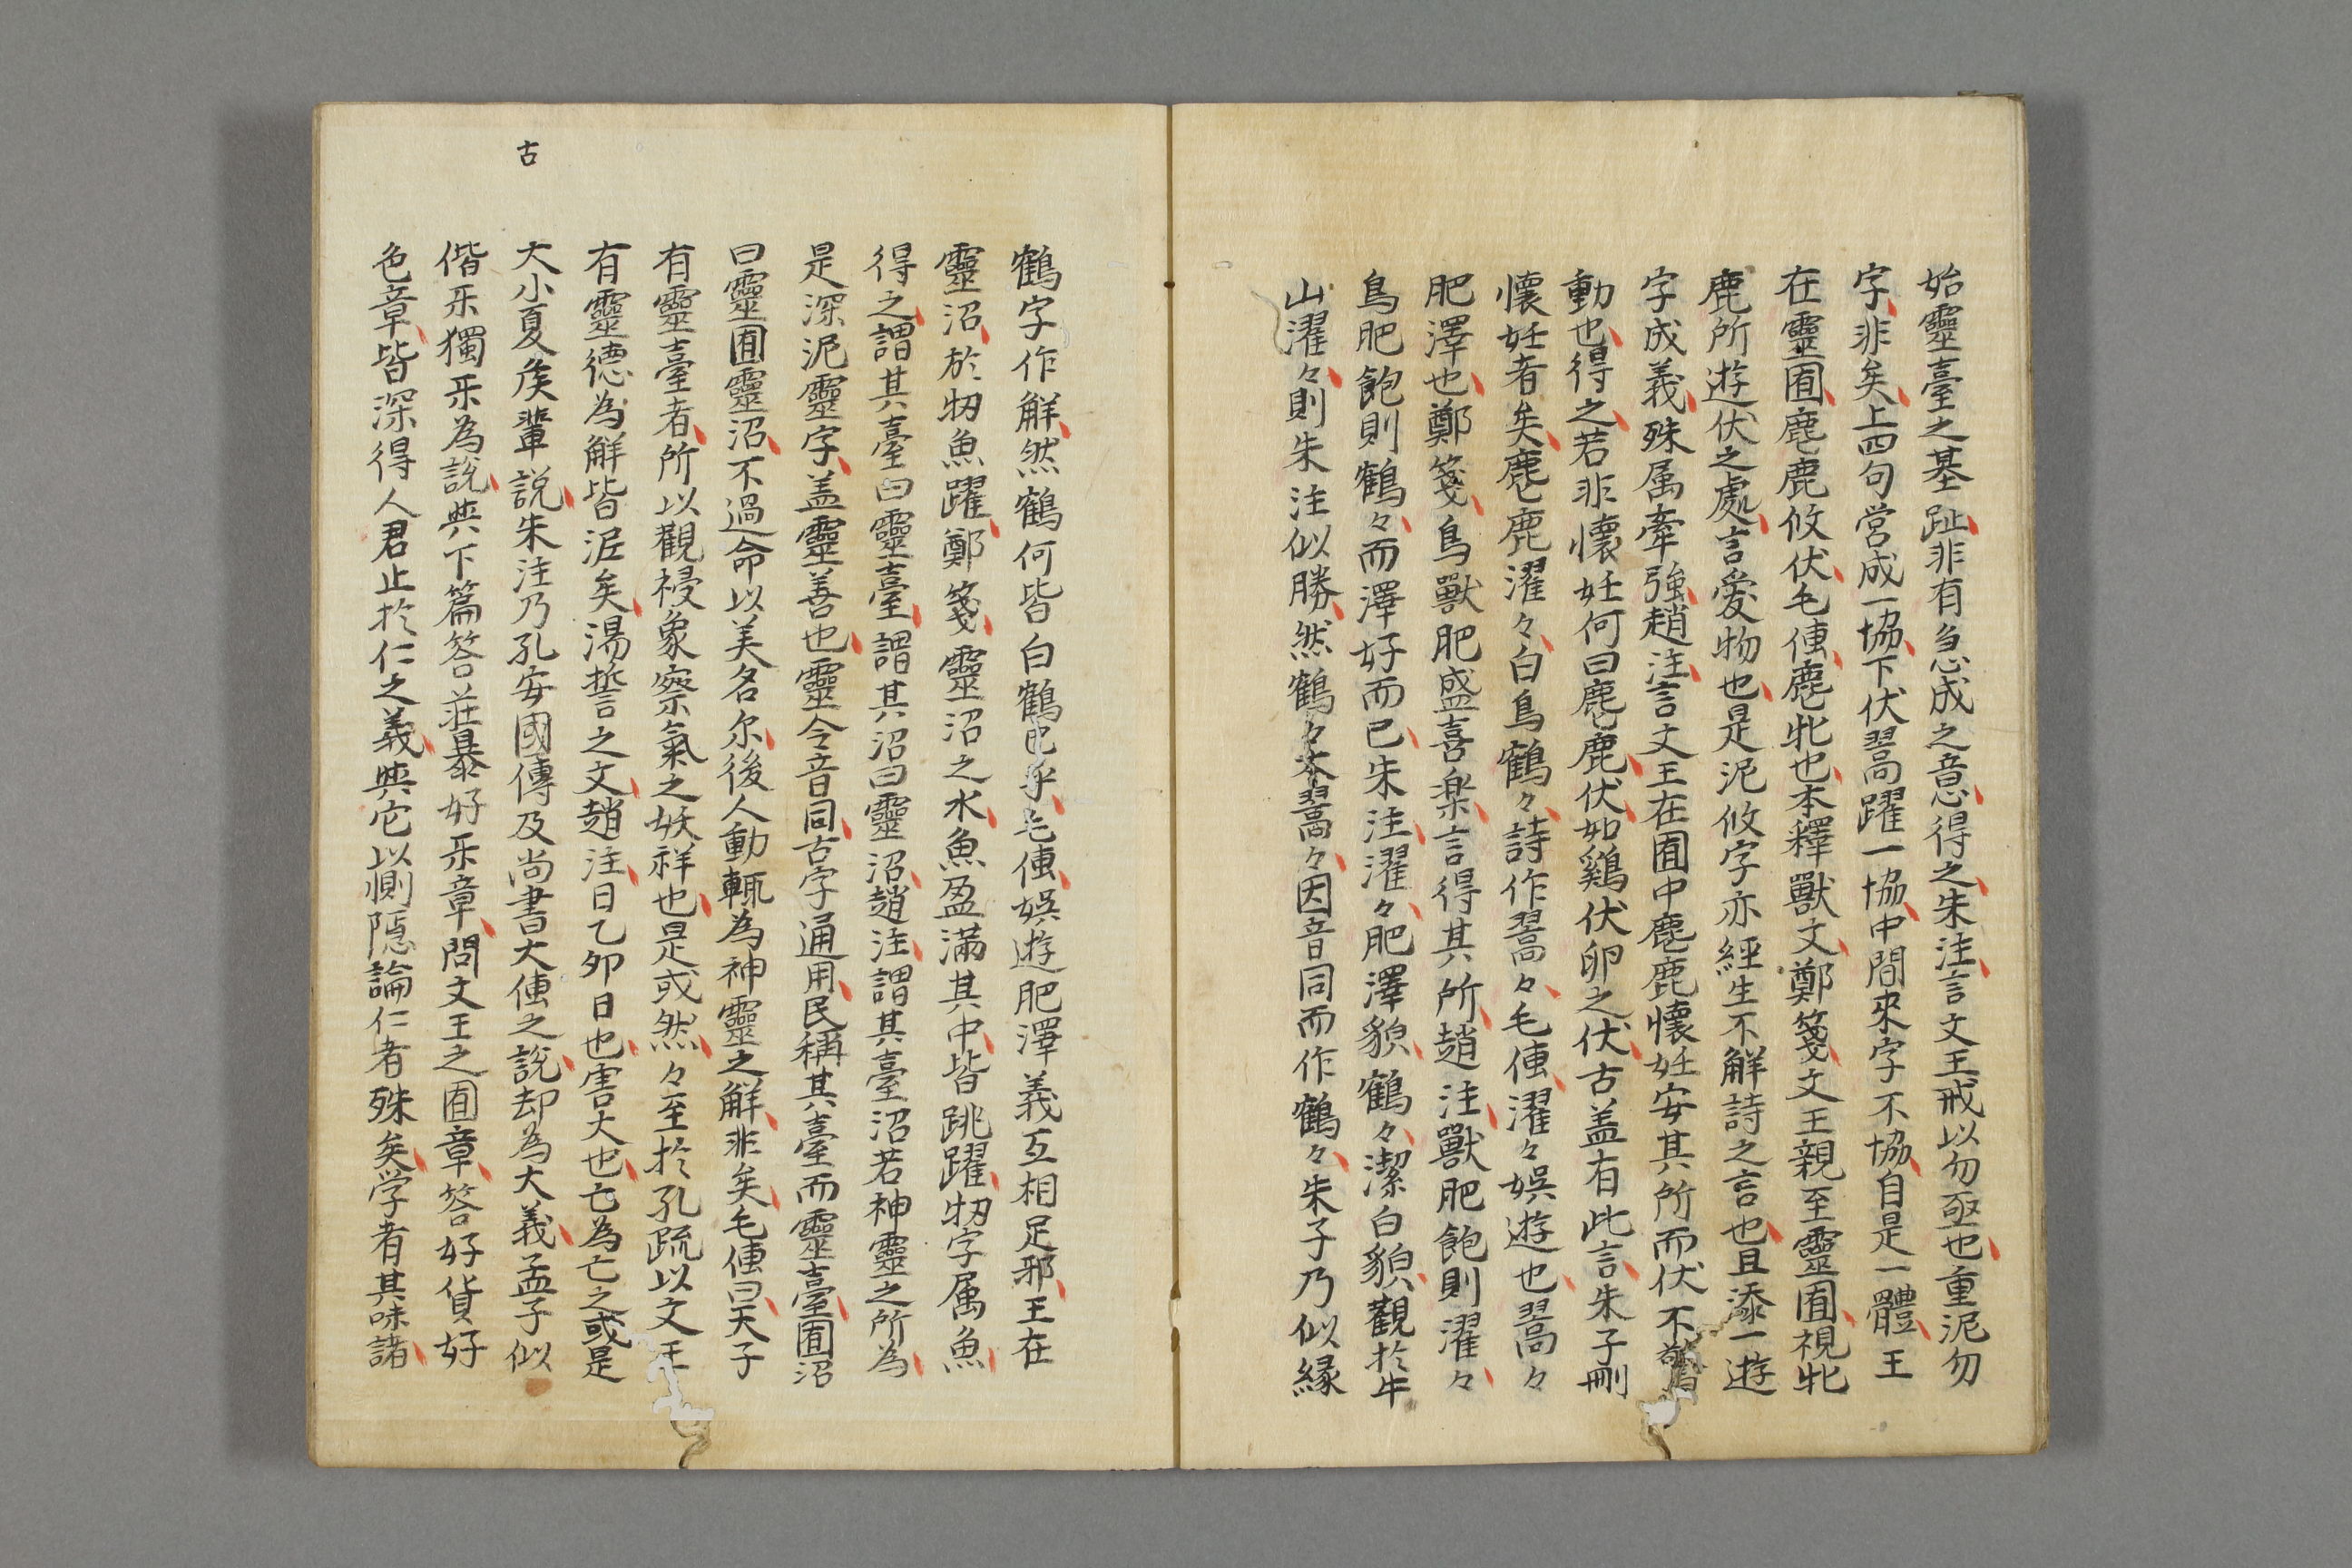 始靈臺之基趾非有急成之意得之朱注言文王戒以勿亟也重泥勿
字非矣上四句営成一協下伏翯躍一協中間來字不協自是一體王
在靈囿麀鹿攸伏毛傳麀牝也本釋獸文鄭箋文王親至靈囿視牝
鹿所遊伏之處言愛物也是泥攸字亦經生不解詩之言也且添一遊
字成義殊属牽強趙注言文王在囿中麀鹿懷妊安其所而伏不驚
動也得之若非懷妊何曰麀鹿伏如鷄伏卵之伏古盖有此言朱子刪
懷妊者矣麀鹿濯々白鳥鶴々詩作翯々毛傳濯々娯遊也翯々
肥澤也鄭箋鳥獸肥盛喜楽言得其所趙注獸肥飽則濯々
鳥肥飽則鶴々而澤好而已朱注濯々肥澤貌鶴々潔白貌觀於牛
山濯々則朱注似勝然鶴々本翯々因音同而作鶴々朱子乃似縁
鶴字作解然鶴何皆白鶴也乎毛傳娯遊肥澤義互相足邪王在
靈沼於牣魚躍鄭箋靈沼之水魚盈滿其中皆跳躍牣字属魚
得之謂其臺曰靈臺謂其沼曰靈沼趙注謂其臺沼若神靈之所為
是深泥靈字盖靈善也靈令音同古字通用民稱其臺而靈臺囿沼
曰靈囿靈沼不過命以美名尓後人動輒為神靈之解非矣毛傳曰天子
有靈臺者所以觀祲象察氣之妖祥也是或然々至於孔疏以文王
有靈德為解皆泥矣湯誓之文趙注日乙夘日也害大也亡為亡之或是
大小夏矦輩説朱注乃孔安國傳及尚書大傳之説却為大義孟子似
古
偕乐獨乐為説與下篇答莊暴好乐章問文王之囿章答好貨好
色章皆深得人君止於仁之義與它以惻隠論仁者殊矣学者其味諸